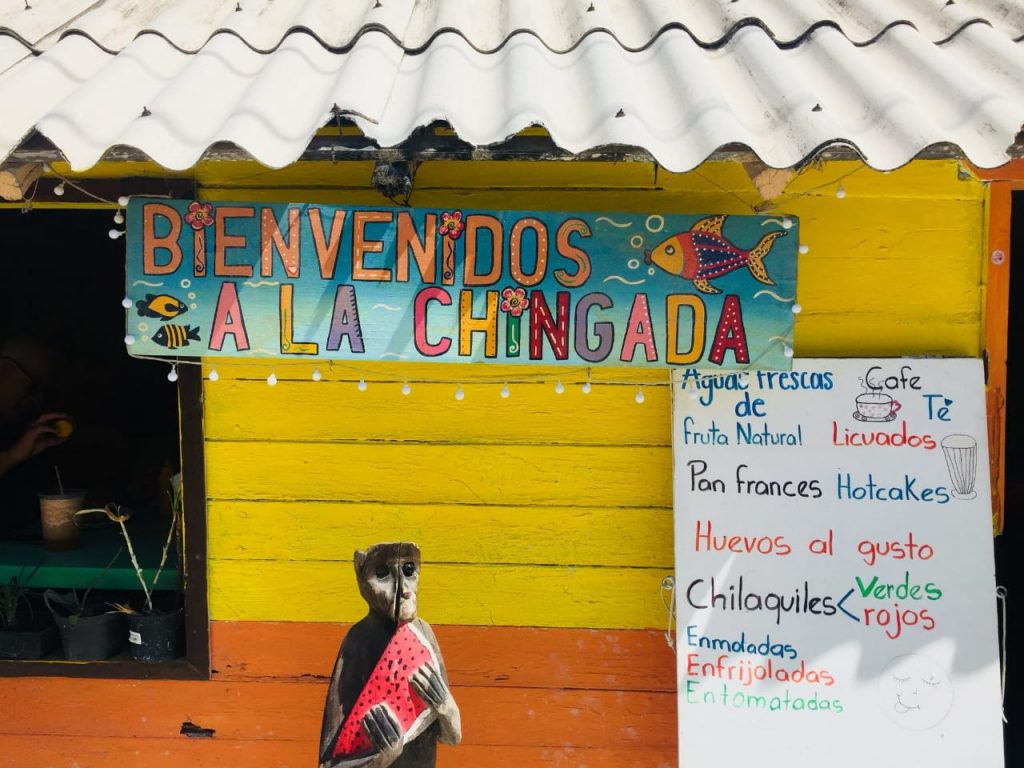 BIENVENIDOS
A LA CHINGADA
Aguas frescas
de
fruta Natural
Cafe
Te
Licuados
Pan frances Hotcakes
Huevos al gusto
Chilaquiles < Verdes
rojos
Enmoladas
Enfrijoladas
Entomatadas